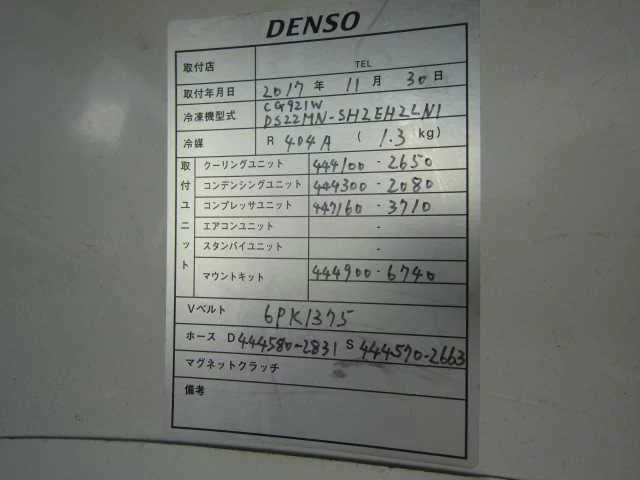 DENSO
取付店 TEL
取付年月日 2017 年 11 月 30 日
冷凍機型式 CG921W
DS22MN-SH2EH2LN1
冷媒 R 404A ( 1.3 kg)
取付ユニット
クーリングユニット 444100-2650
コンデンシングユニット 444300-2080
コンプレッサユニット 447160-3710
エアコンユニット -
スタンバイユニット -
マウントキット 444900-6740
Vベルト 6PK1375
ホース D 444580-2831 S 444570-2663
マグネットクラッチ
備考